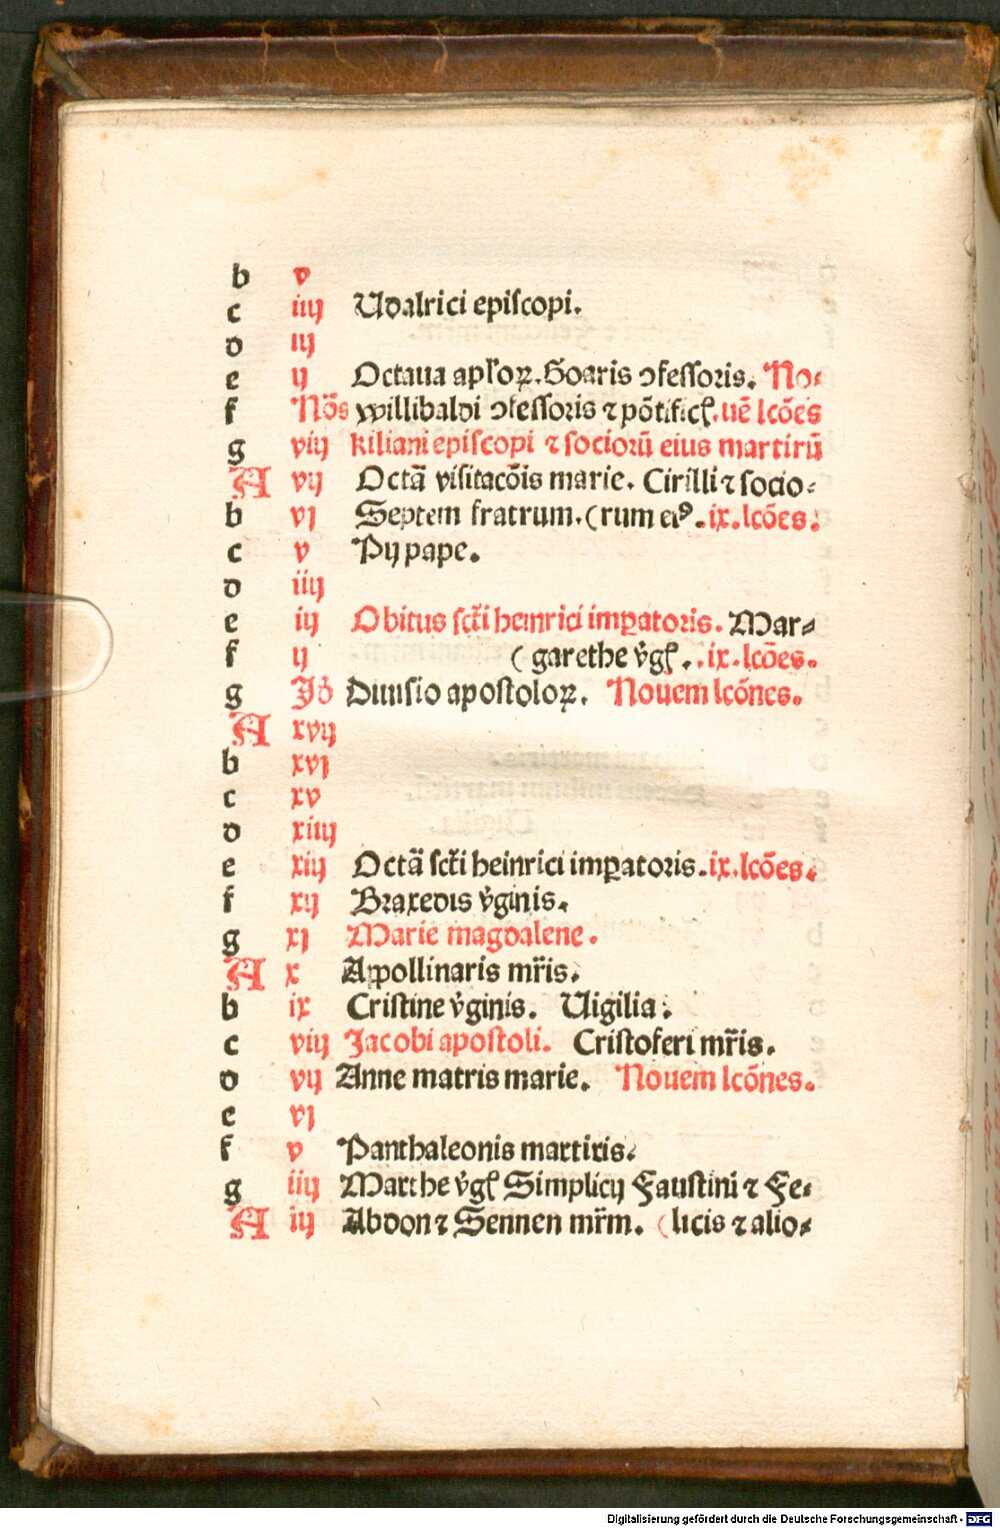 b v
c iiij Udalrici episcopi.
d iij
e ij Octaua aplʼoꝝ. Goaris ↄfessoris. No⸗
f Nõs willibaldi ↄfessoris ⁊ põtific̃. uẽ lcões
g viij kiliani episcopi ⁊ sociorũ eius martirũ
A vij Octã visitacõis marie. Cirilli ⁊ socio⸗
b vj Septem fratrum. (rum eiꝰ. ix. lcões.
c v Pij pape.
d iiij
e iij Obitus scti heinrici imꝑatoris. Mar⸗
f ij (garethe v̉gͥ. .ix. lcões.
g Jd̾ Diuisio apostoloꝝ. Nouem lcõnes.
A xvij
b xvj
c xv
d xiiij
e xiij Octã scti heinrici imꝑatoris. ix. lcões.
f xij Braxedis v̉ginis.
g xj Marie magdalene.
A x Appollinaris mr̃is.
b ix Cristine v̉ginis. Uigilia.
c viij Jacobi apostoli. Cristoferi mr̃is.
d vij Anne matris marie. Nouem lcõnes.
e vj
f v Panthaleonis martiris.
g iiij Marthe v̉gͥ Simplicij Faustini ⁊ Fe⸗
A iij Abdon ⁊ Sennen mr̃m. (licis ⁊ alio⸗
Digitalisierung gefördert durch die Deutsche Forschungsgemeinschaft - DFG